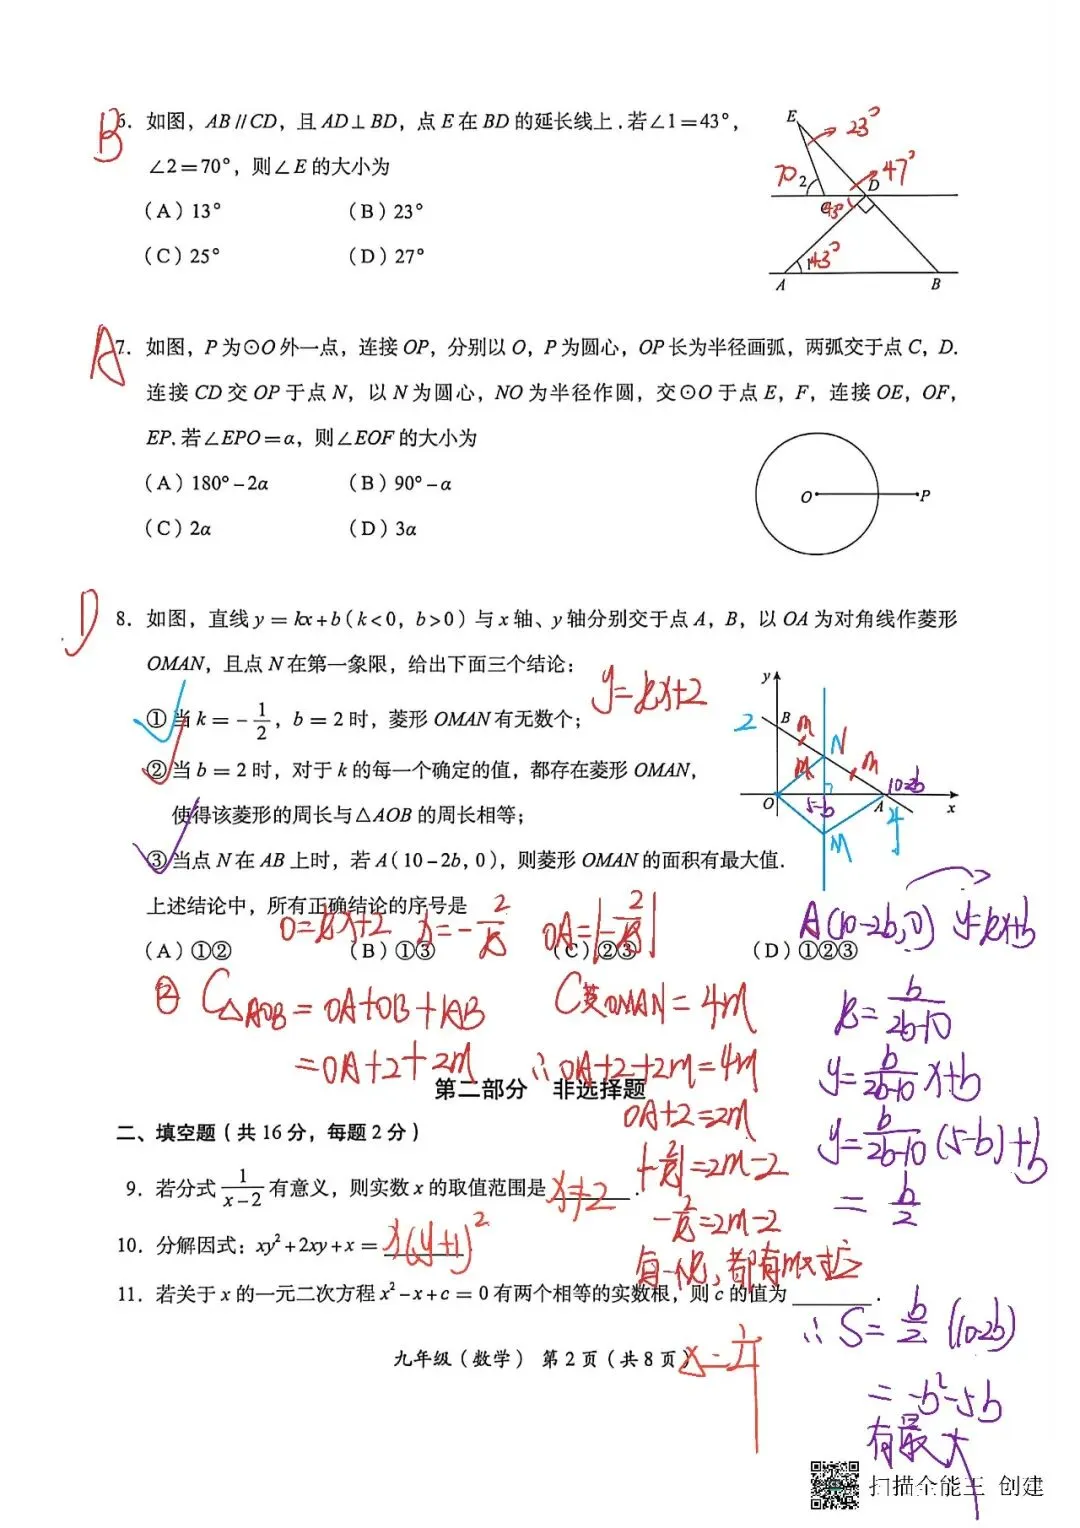 B
6. 如图，AB∥CD，且AD⊥BD，点E在BD的延长线上.若∠1=43°，
∠2=70°，则∠E的大小为
（A）13°　（B）23°
（C）25°　（D）27°
E 23°
70 2 47° D
C 43°
1 43°
A B
A
7. 如图，P为⊙O外一点，连接OP，分别以O，P为圆心，OP长为半径画弧，两弧交于点C，D.
连接CD交OP于点N，以N为圆心，NO为半径作圆，交⊙O于点E，F，连接OE，OF，
EP.若∠EPO=α，则∠EOF的大小为
（A）180°-2α　（B）90°-α
（C）2α　（D）3α
O P
D
8. 如图，直线y=kx+b(k<0，b>0)与x轴、y轴分别交于点A，B，以OA为对角线作菱形
OMAN，且点N在第一象限，给出下面三个结论：
y=kx+2
①当k=-1/2，b=2时，菱形OMAN有无数个；
②当b=2时，对于k的每一个确定的值，都存在菱形OMAN，
使得该菱形的周长与△AOB的周长相等；
③当点N在AB上时，若A(10-2b，0)，则菱形OMAN的面积有最大值.
y
2 B m N
m m
O 5-b A 10-2b x
M 4
上述结论中，所有正确结论的序号是
0=kx+2 x=-2/k OA=|-2/k|
A(10-2b,0) y=kx+b
（A）①②　（B）①③　（C）②③　（D）①②③
② C△AOB=OA+OB+AB C菱OMAN=4m
=OA+2+2m ∴OA+2+2m=4m
k=b/(2b-10)
y=b/(2b-10)x+b
y=b/(2b-10)(5-b)+b
=b/2
第二部分　非选择题
OA+2=2m
二、填空题（共16分，每题2分）
|-2/k|=2m-2
9. 若分式1/(x-2)有意义，则实数x的取值范围是 x≠2 .
-2/k=2m-2
10. 分解因式：xy²+2xy+x= x(y+1)²
有一个k，都有m对应
11. 若关于x的一元二次方程x²-x+c=0有两个相等的实数根，则c的值为 .
∴S=b/2(10-2b)
=-b²-5b
有最大
九年级（数学）　第2页（共8页）
扫描全能王　创建